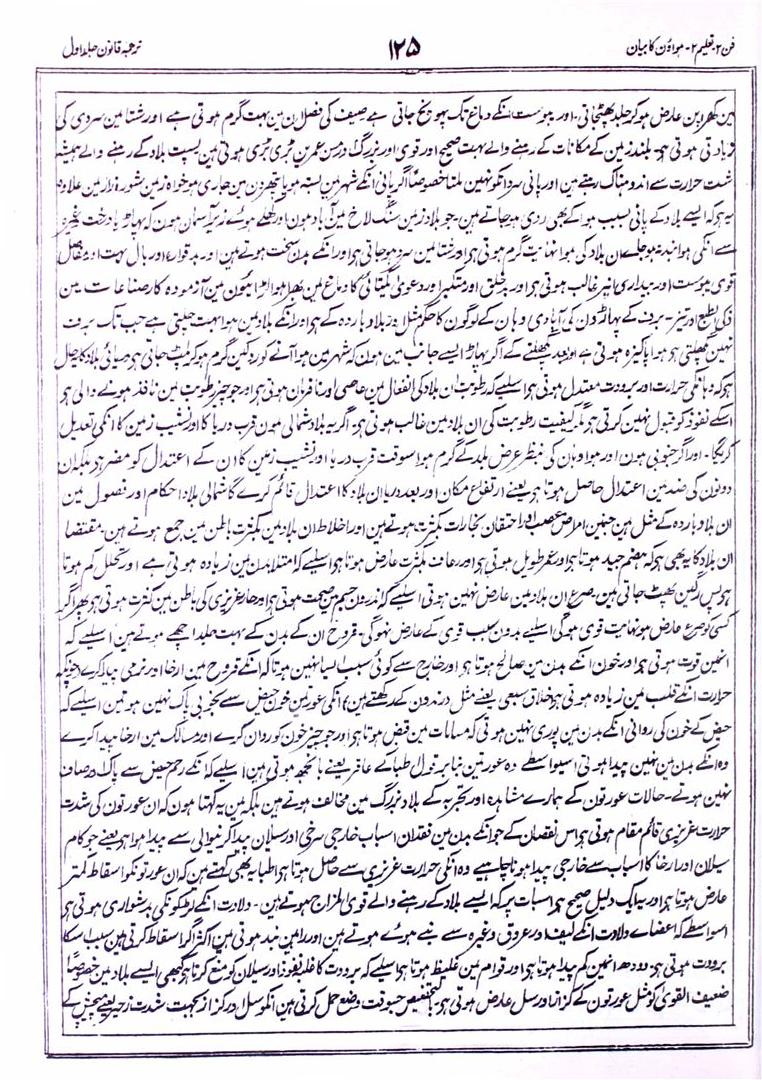 فن ۲- تعلیم ۲- ہواؤن کا بیان ۱۲۵ ترجمہ قانون جلد اول
مین کھراپن عارض ہو کر جلد پھٹجاتی۔ اور یبوست انکے دماغ تک پہونچ جاتی ہے صیف کی فصل ان مین بہت گرم ہوتی ہے اور شتا مین سردی کی
زیادتی ہوتی ہی بلند زمین کے مکانات کے رہنے والے بہت صحیح اور قوی اور بزرگ اور مسن عمرین بڑی بڑی ہوتی ہین پست بلاد کے رہنے والے ہمیشہ
شدت حرارت سے اندوہناک رہتے ہین اور پانی سرد انکو نہین ملتا خصوصاً اگر پانی انکے شہر مین بستہ ہو یا پتھرون مین جاری ہو خواہ زمین شور زار مین علاوہ
یہ ہو کہ ایسے بلاد کے پانی بسبب ہوا کے بھی ردی ہو جاتے ہین۔ جو بلاد زمین سنگ لاخ مین آباد ہون اور کھلے ہوے زیر آسمان ہون کہ پہاڑ یا درخت وغیرہ
سے انکی ہوا بند نہ ہو جاے ان بلاد کی ہوا نہایت گرم ہوتی ہی اور شتا مین سرد ہو جاتی ہو اور انکے بدن سخت ہوتے ہین اور بد قوارہ اور بال بہت اور مفاصل
قوی یبوست اور بیداری انپر غالب ہوتی ہی اور بدخلق اور متکبر اور دعوی یکتائی کا دماغ مین بھرا ہوا لڑائیون مین آزمودہ کار صناعات مین
ذکی الطبع اور تیز۔ برف کے پہاڑون کی آبادی وہان کے لوگون کا حکم مثل اور بلاد باردہ کے ہو اور انکے بلاد مین ہوا بہت چلتی ہے جب تک برف
نہین پگھلتی ہی ہوا پاکیزہ ہوتی ہے اور بعد پگھلنے کے اگر پہاڑ ایسے جانب مین ہون کہ شہر مین ہوا آنے کو روکین گرم ہو کر پلٹ جاتی ہو دریائی بلاد کا یہ حال
ہو کہ وہانکی حرارت اور برودت معتدل ہوتی ہو اسلیے کہ رطوبت ان بلاد کی انفعال مین عاصی اور نافرمان ہوتی ہو اور جو چیز رطوبت مین نافذ ہونے والی ہو
اسکے نفوذ کو قبول نہین کرتی ہو مگر کیفیت رطوبت کی ان بلاد مین غالب ہوتی ہو۔ اگر یہ بلاد شمالی ہون قرب دریا کا اور نشیب زمین کا انکی تعدیل
کریگا۔ اور اگر جنوبی ہون اور ہوا وہان کی بنظر عرض بلد کے گرم ہوا سوقت قرب دریا اور نشیب زمین کا ان کے اعتدال کو مضر ہو بلکہ ان
دونون کی ضد مین اعتدال حاصل ہوتا ہو یعنے ارتفاع مکان اور بعد دریا ان بلاد کا اعتدال قائم کرے گا شمالی بلاد احکام اور فصول مین
ان بلاد باردہ کے مثل ہین جنمین امراض عصب اور احتقان بخارات بکثرت ہوتے ہین اور اخلاط ان بلاد مین بکثرت باطن مین جمع ہوتے ہین۔ مقتضا
ان بلاد کا یہ بھی ہو کہ ہضم جید ہوتا ہو اور عمر طویل ہوتی ہو اور رعاف بکثرت عارض ہوتا ہو اسلیے کہ امتلا بدن مین زیادہ ہوتی ہے اور تحلل کم ہوتا
ہو پس رگین پھٹ جاتی ہین۔ صرع ان بلاد مین عارض نہین ہوتی اسلیے کہ اندرون جسم مین صحت ہوتی ہو اور حار غریزی کی باطن مین کثرت ہوتی ہو پھر اگر
کسی کو صرع عارض ہو نہایت قوی ہو گی اسلیے بدون سبب قوی کے عارض نہو گی۔ قروح ان کے بدن کے بہت جلد اچھے ہوتے ہین اسلیے کہ
انمین قوت ہوتی ہو اور خون انکے بدن مین صالح ہوتا ہو اور خارج سے کوئی سبب ایسا نہین ہوتا کہ انکے قروح مین ارخا اور نرمی پیدا کرے چونکہ
حرارت انکے قلب مین زیادہ ہوتی ہو اخلاق سبعی یعنے مثل درندون کے رکھتے ہین) انکی عورتین خون حیض سے بخوبی پاک نہین ہوتین اسلیے کہ
حیض کے خون کی روانی انکے بدن مین پوری نہین ہوتی کہ مسامات مین قبض ہوتا ہو اور جو چیز خون کو روان کرے اور مسالک مین ارخا پیدا کرے
وہ انکے بدن مین نہین پیدا ہوتی اسیواسطے وہ عورتین بنابر قول طبا کے عاقر یعنے بانجھ ہوتی ہین اسلیے کہ انکے رحم حیض سے پاک اور صاف
نہین ہوتے۔ حالات عورتون کے ہمارے مشاہدہ اور تجربہ کے بلاد بزرگ مین مخالف ہوتے ہین بلکہ مین یہ کہتا ہون کہ ان عورتون کی شدت
حرارت غریزی قائم مقام ہوتی ہو اس نقصان کے جو انکے بدن مین فقدان اسباب خارجی سرخی اور سیلان پیدا کرنیوالی سے پیدا ہوا ہو یعنے جو کام
سیلان اور ارخا کا اسباب سے خارجی پیدا ہونا چاہیے وہ انکی حرارت غریزی سے حاصل ہوتا ہو اطبا یہ بھی کہتے ہین کہ ان عورتونکو اسقاط کمتر
عارض ہوتا ہو اور یہ ایک دلیل صحیح ہو اسبات پر کہ ایسے بلاد کے رہنے والے قوی المزاج ہوتے ہین۔ ولادت انکے لڑکونکی بدشواری ہوتی ہو
اسواسطے کہ اعضاے ولادت انکے لیف اور عروق وغیرہ سے بنے ہوے ہوتے ہین اور راہین بند ہوتی ہین اکثر اگر اسقاط کرتی ہین سبب اسکا
برودت ہوتی ہی۔ دودھ انمین کم پیدا ہوتا ہو اور قوام مین غلیظ ہوتا ہو اسلیے کہ برودت کا غلبہ نفوذ اور سیلان کو منع کرتا ہو کبھی ایسے بلاد مین خصوصاً
ضعیف القویٰ کو مثل عورتون کے کزاز اور سل عارض ہوتی ہو بالتخصیص جبوقت وضع حمل کرتی ہین انکو سل اور کزاز بجہت شدت زحیر یعنے پیچش کے